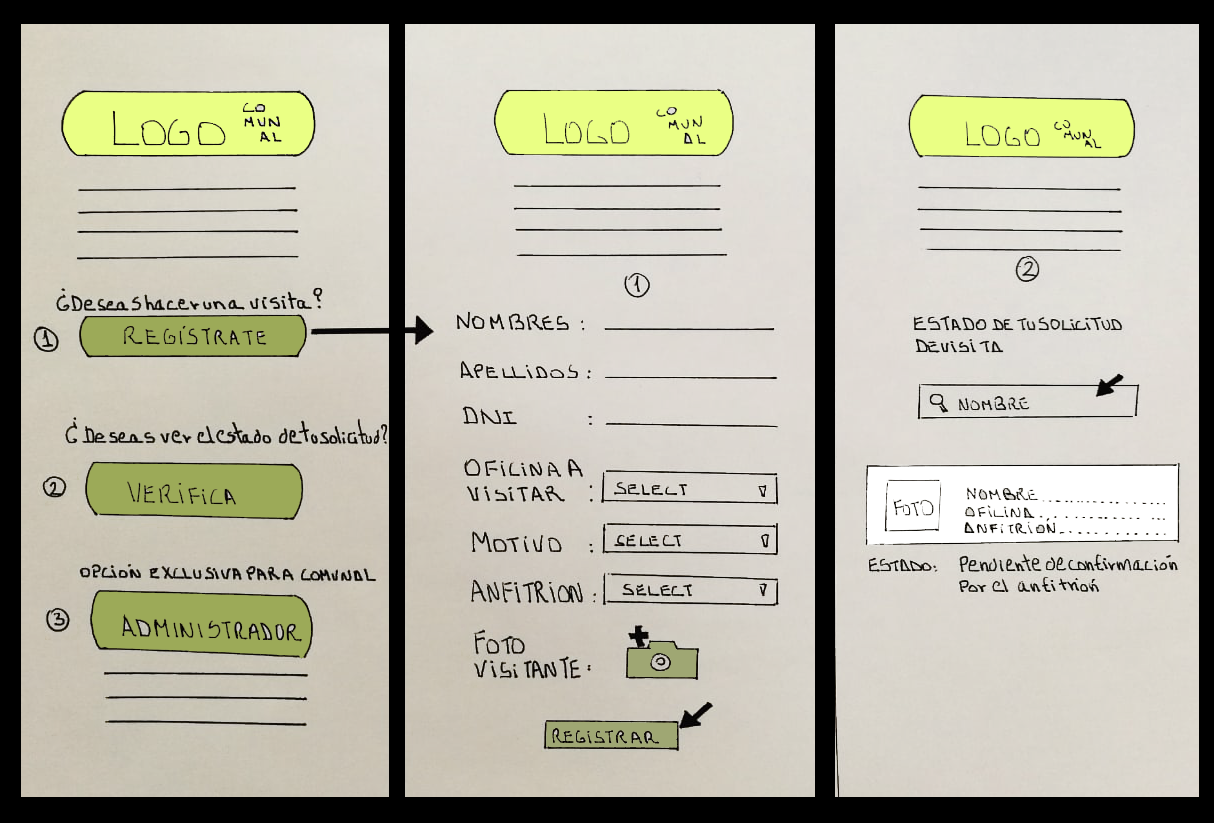 LOGO
CO
MUN
AL
¿Deseas hacer una visita?
1
REGÍSTRATE
¿Deseas ver el estado de tu solicitud?
2
VERIFICA
OPCIÓN EXCLUSIVA PARA COMUNAL
3
ADMINISTRADOR
LOGO
CO
MUN
AL
1
NOMBRES :
APELLIDOS :
DNI :
OFICINA A
VISITAR : SELECT
MOTIVO : SELECT
ANFITRION : SELECT
FOTO
VISITANTE :
REGISTRAR
LOGO
CO
MUN
AL
2
ESTADO DE TU SOLICITUD
DE VISITA
NOMBRE
FOTO
NOMBRE
OFICINA
ANFITRION
ESTADO: Pendiente de confirmación
Por el anfitrión